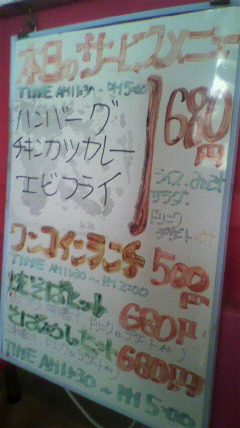 本日のサービスメニュー
TIME AM11:30〜PM5:00
ハンバーグ
チキンカツカレー
エビフライ
680円
ライス、みそ
サラダ
ドリンク
デザート付
ワンコインランチ 500円
TIME AM11:30〜PM2:00
焼そばセット 680円
そばめしセット 680円
TIME AM11:30〜PM5:00